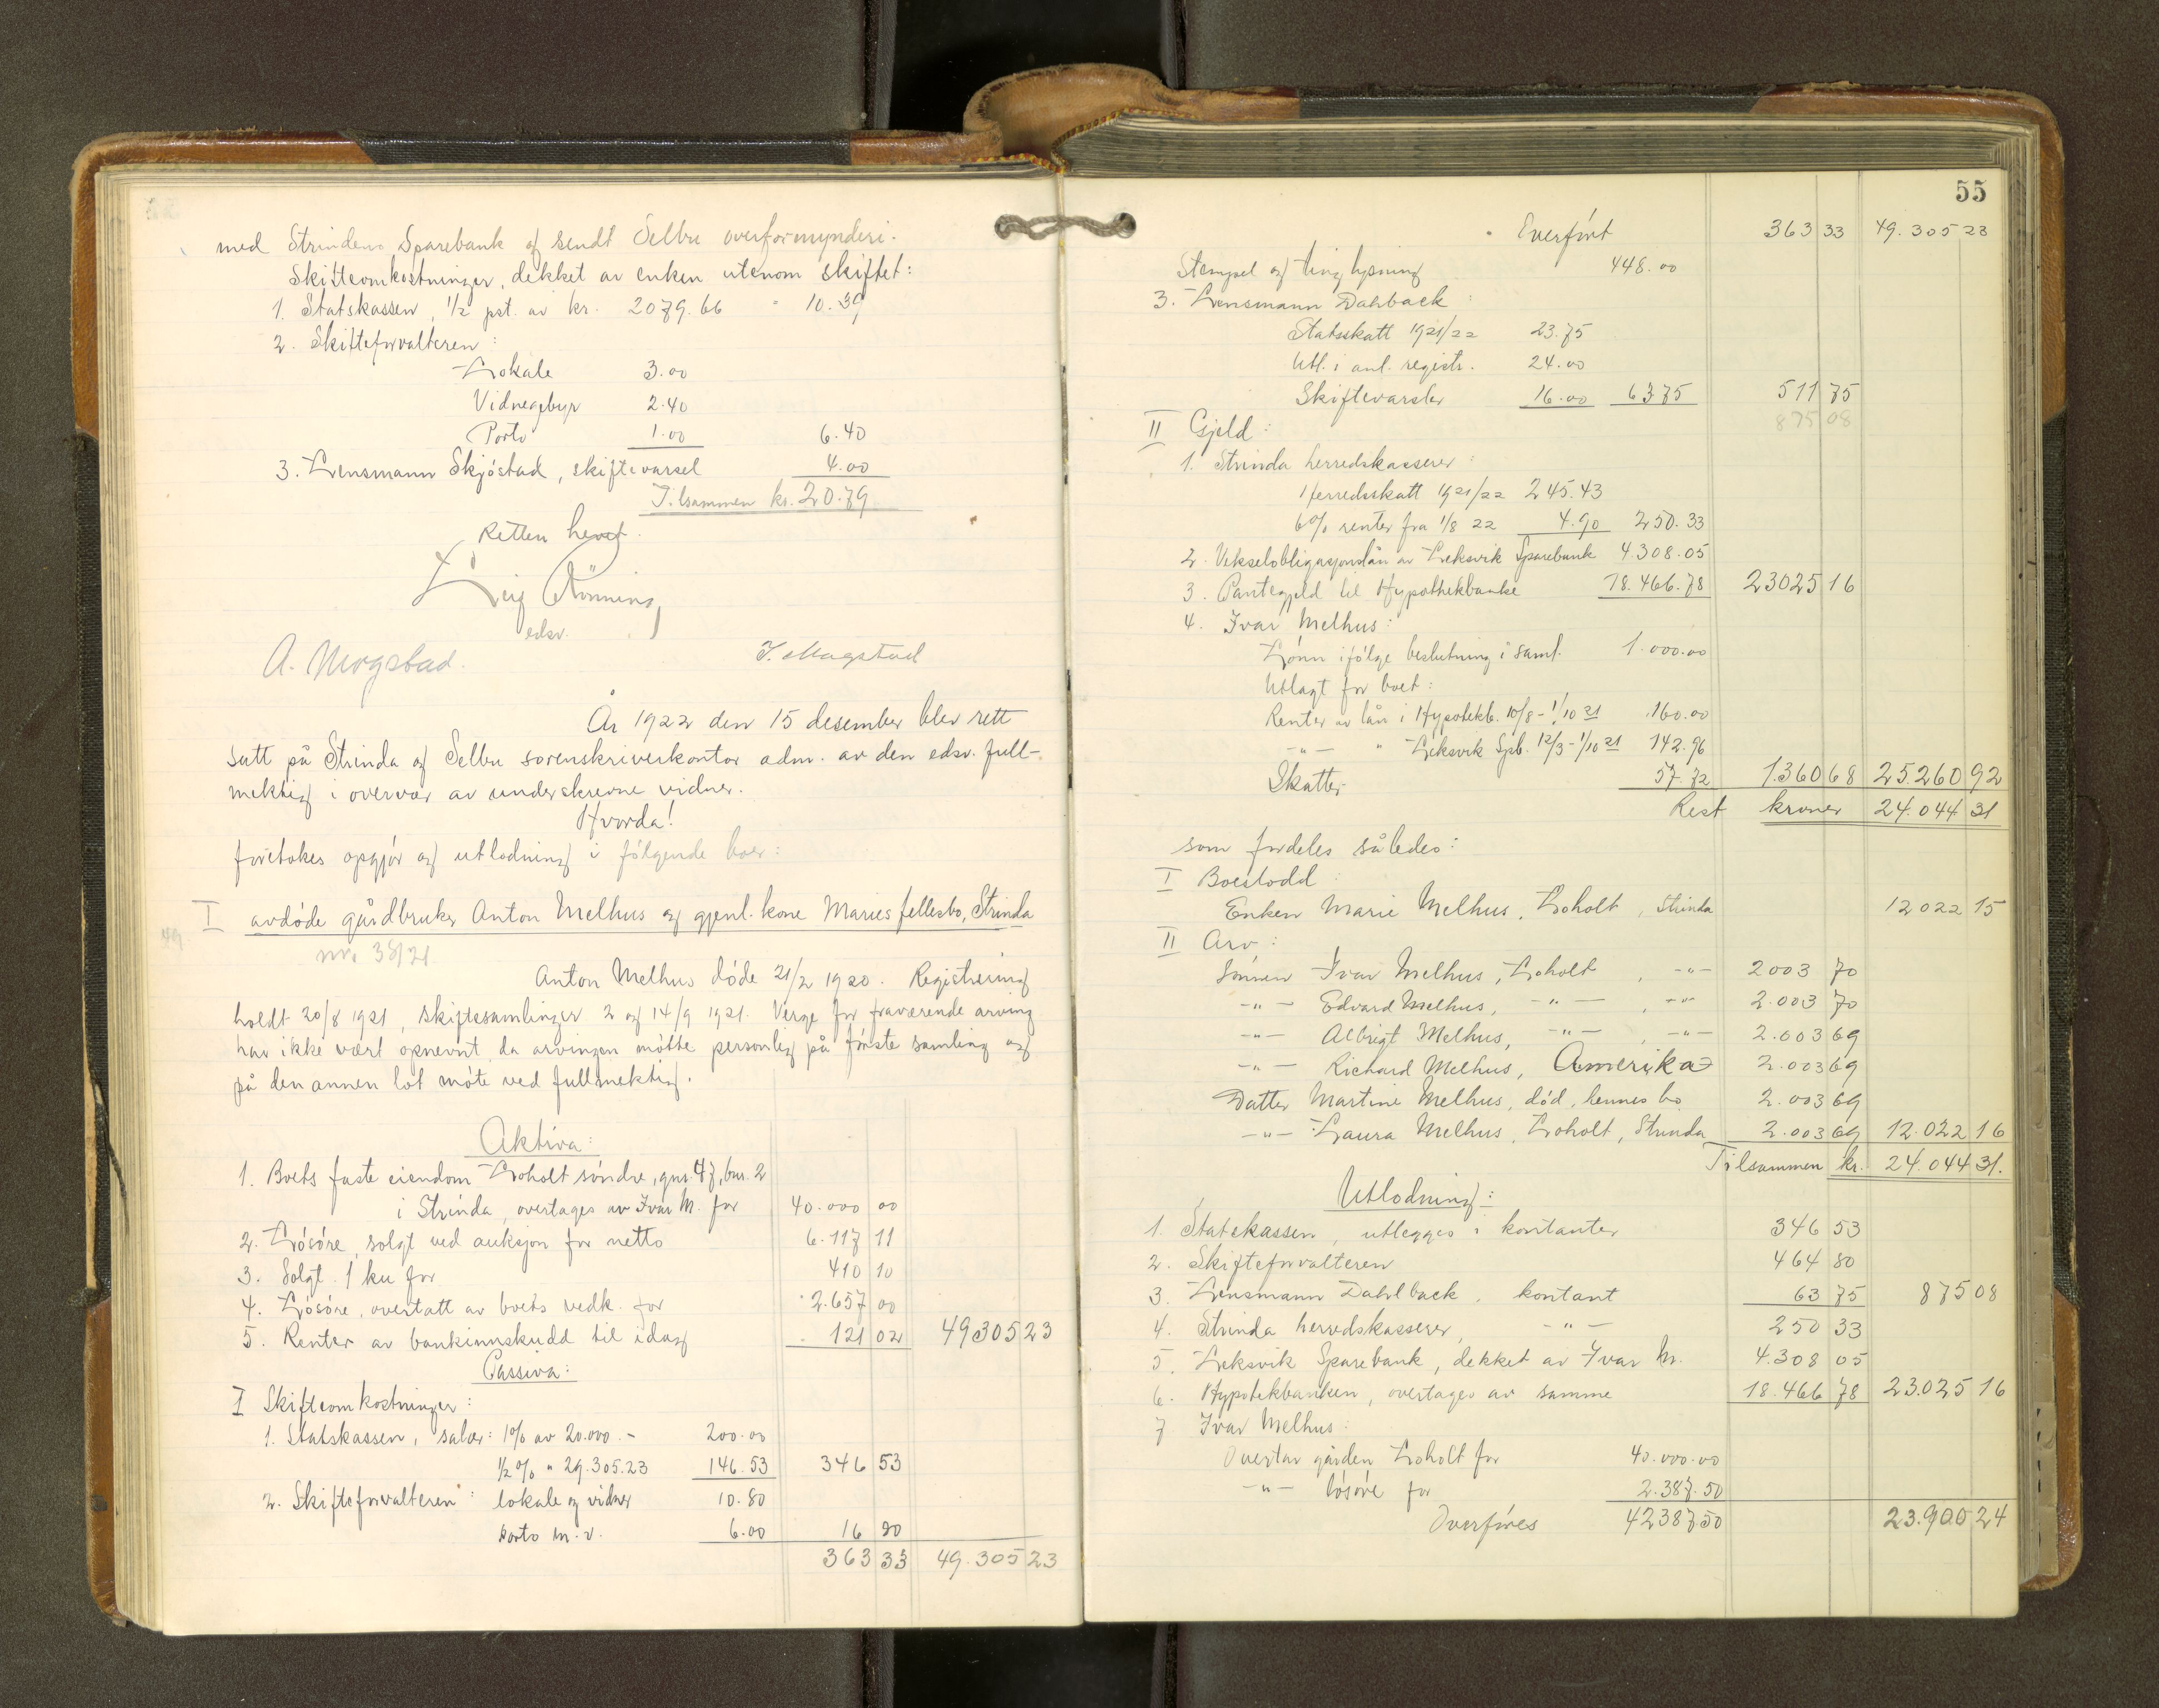 med Strindens Sparebank og sendt Selbu overformynderi.
Skifteomkostninger, dekket av enken utenom skiftet:
1. Statskassen, 1/2 pst. av kr. 2079.66 " 10.39
2. Skifteforvalteren:
Lokale 3.00
Vidnegebyr 2.40
Porto 1.00 6.40
3. Lensmann Skjóstad, skiftevarsel 4.00
Tilsammen kr. 20.79
Retten hevet.
Leif Rönning
edsv.
A. Mogstad. J. Mogstad
År 1922 den 15 desember blev rett
satt på Strinda og Selbu sorenskriverkontor adm. av den edsv. full-
mektig i overvær av underskrevne vidner.
Hvorda!
foretokes opgjór og utlodning i fólgende boer:
I avdóde gårdbruker Anton Melhus og gjenl. kone Maries fellesbo, Strinda
nr. 38/21
Anton Melhus dóde 21/2 1920. Registrering
holdt 20/8 1921, skiftesamlinger 2 og 14/9 1921. Verge for fraværende arving
har ikke vært opnevnt, da arvingen mótte personlig på fórste samling og
på den annen lot móte ved fullmektig.
Aktiva:
1. Boets faste eiendom Loholt sóndre, gnr. 47, bnr. 2
i Strinda, overtages av Ivar M. for 40.000 00
2. Lósóre, solgt ved auksjon for netto 6.117 11
3. Solgt 1 ku for 410 10
4. Lósóre, overtatt av boets vedk. for 2.657 00
5. Renter av bankinnskudd til idag 121 02 49305 23
Passiva:
I Skifteomkostninger:
1. Statskassen, salær: 1% av 20.000.- 200.00
1/2% " 29.305.23 146.53 346 53
2. Skifteforvalteren: lokale og vidner 10.80
porto m.v. 6.00 16 80
363 33 49.305 23
55
Overfórt 363 33 49.305 23
Stempel og tinglysning 448.00
3. Lensmann Dahlback:
Statsskatt 1921/22 23.75
Utl. i anl. registr. 24.00
Skiftevarsler 16.00 63.75 511 75
875 08
II Gjeld:
1. Strinda herredskasserer:
Herredsskatt 1921/22 245.43
6% renter fra 1/8 22 4.90 250.33
2. Vekselobligasjonslån av Leksvik Sparebank 4.308.05
3. Pantegjeld til Hypothekbanke 18.466.78 23025 16
4. Ivar Melhus:
Lónn ifólge beslutning i saml. 1.000.00
Utlagt for boet:
Renter av lån i Hypotekb. 10/8 - 1/10 21 160.00
-"- " Leksvik Spb. 12/3 - 1/10 21 142.96
Skatter 57.72 1.360 68 25260 92
Rest kroner 24.044 31
som fordeles således:
I Boeslodd
Enken Marie Melhus, Loholt, Strinda 12022 15
II Arv:
Sónnen Ivar Melhus, Loholt, -"- 2003 70
-"- Edvard Melhus, -"-, -"- 2.003 70
-"- Albrigt Melhus, -"-, -"- 2.003 69
-"- Richard Melhus, Amerika 2.003 69
Datter Martine Melhus, död, hennes bo 2.003 69
-"- Laura Melhus, Loholt, Strinda 2.003 69 12.022 16
Tilsammen kr. 24.044 31.
Utlodning:
1. Statskassen, utlegges i kontanter 346 53
2. Skifteforvalteren 464 80
3. Lensmann Dahlback, kontant 63 75 875 08
4. Strinda herredskasserer, -"- 250 33
5. Leksvik Sparebank, dekket av Ivar M. 4.308 05
6. Hypotekbanken, overtages av samme 18.466 78 23.025 16
7 Ivar Melhus:
Overtar gården Loholt for 40.000.00
-"- lósóre for 2.387.50
Overfóres 42387 50 23.900 24